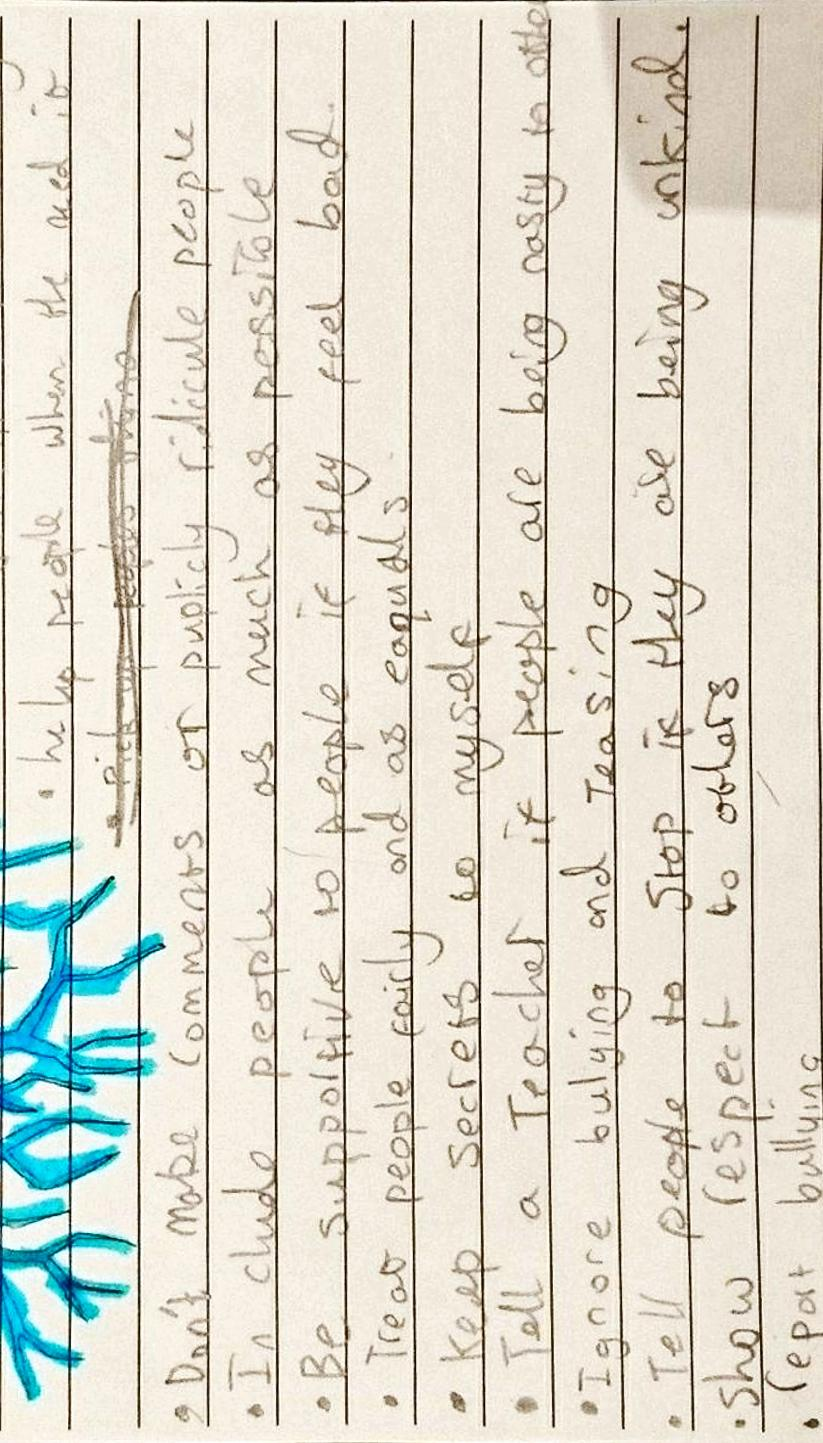 • help people when the need it
• Don't make comments or puplicly ridicule people
• In clude people as much as possible
• Be supportive to people if they feel bad.
• Treat people fairly and as eaquals.
• Keep secrets to myself
• Tell a Teacher if people are being nasty to othe
• Ignore bullying and Teasing
• Tell people to stop if they are being unkind.
• Show respect to others
• report bullying